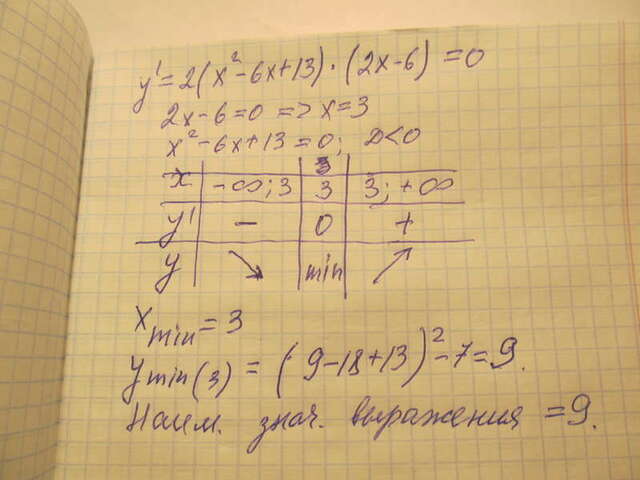 y' = 2(x² - 6x + 13) · (2x - 6) = 0
2x - 6 = 0 => x = 3
x² - 6x + 13 = 0; D < 0
3
x | -∞; 3 | 3 | 3; +∞
y' | - | 0 | +
y | ↘ | min | ↗
x min = 3
y min(3) = (9 - 18 + 13)² - 7 = 9.
Наим. знач. выражения = 9.